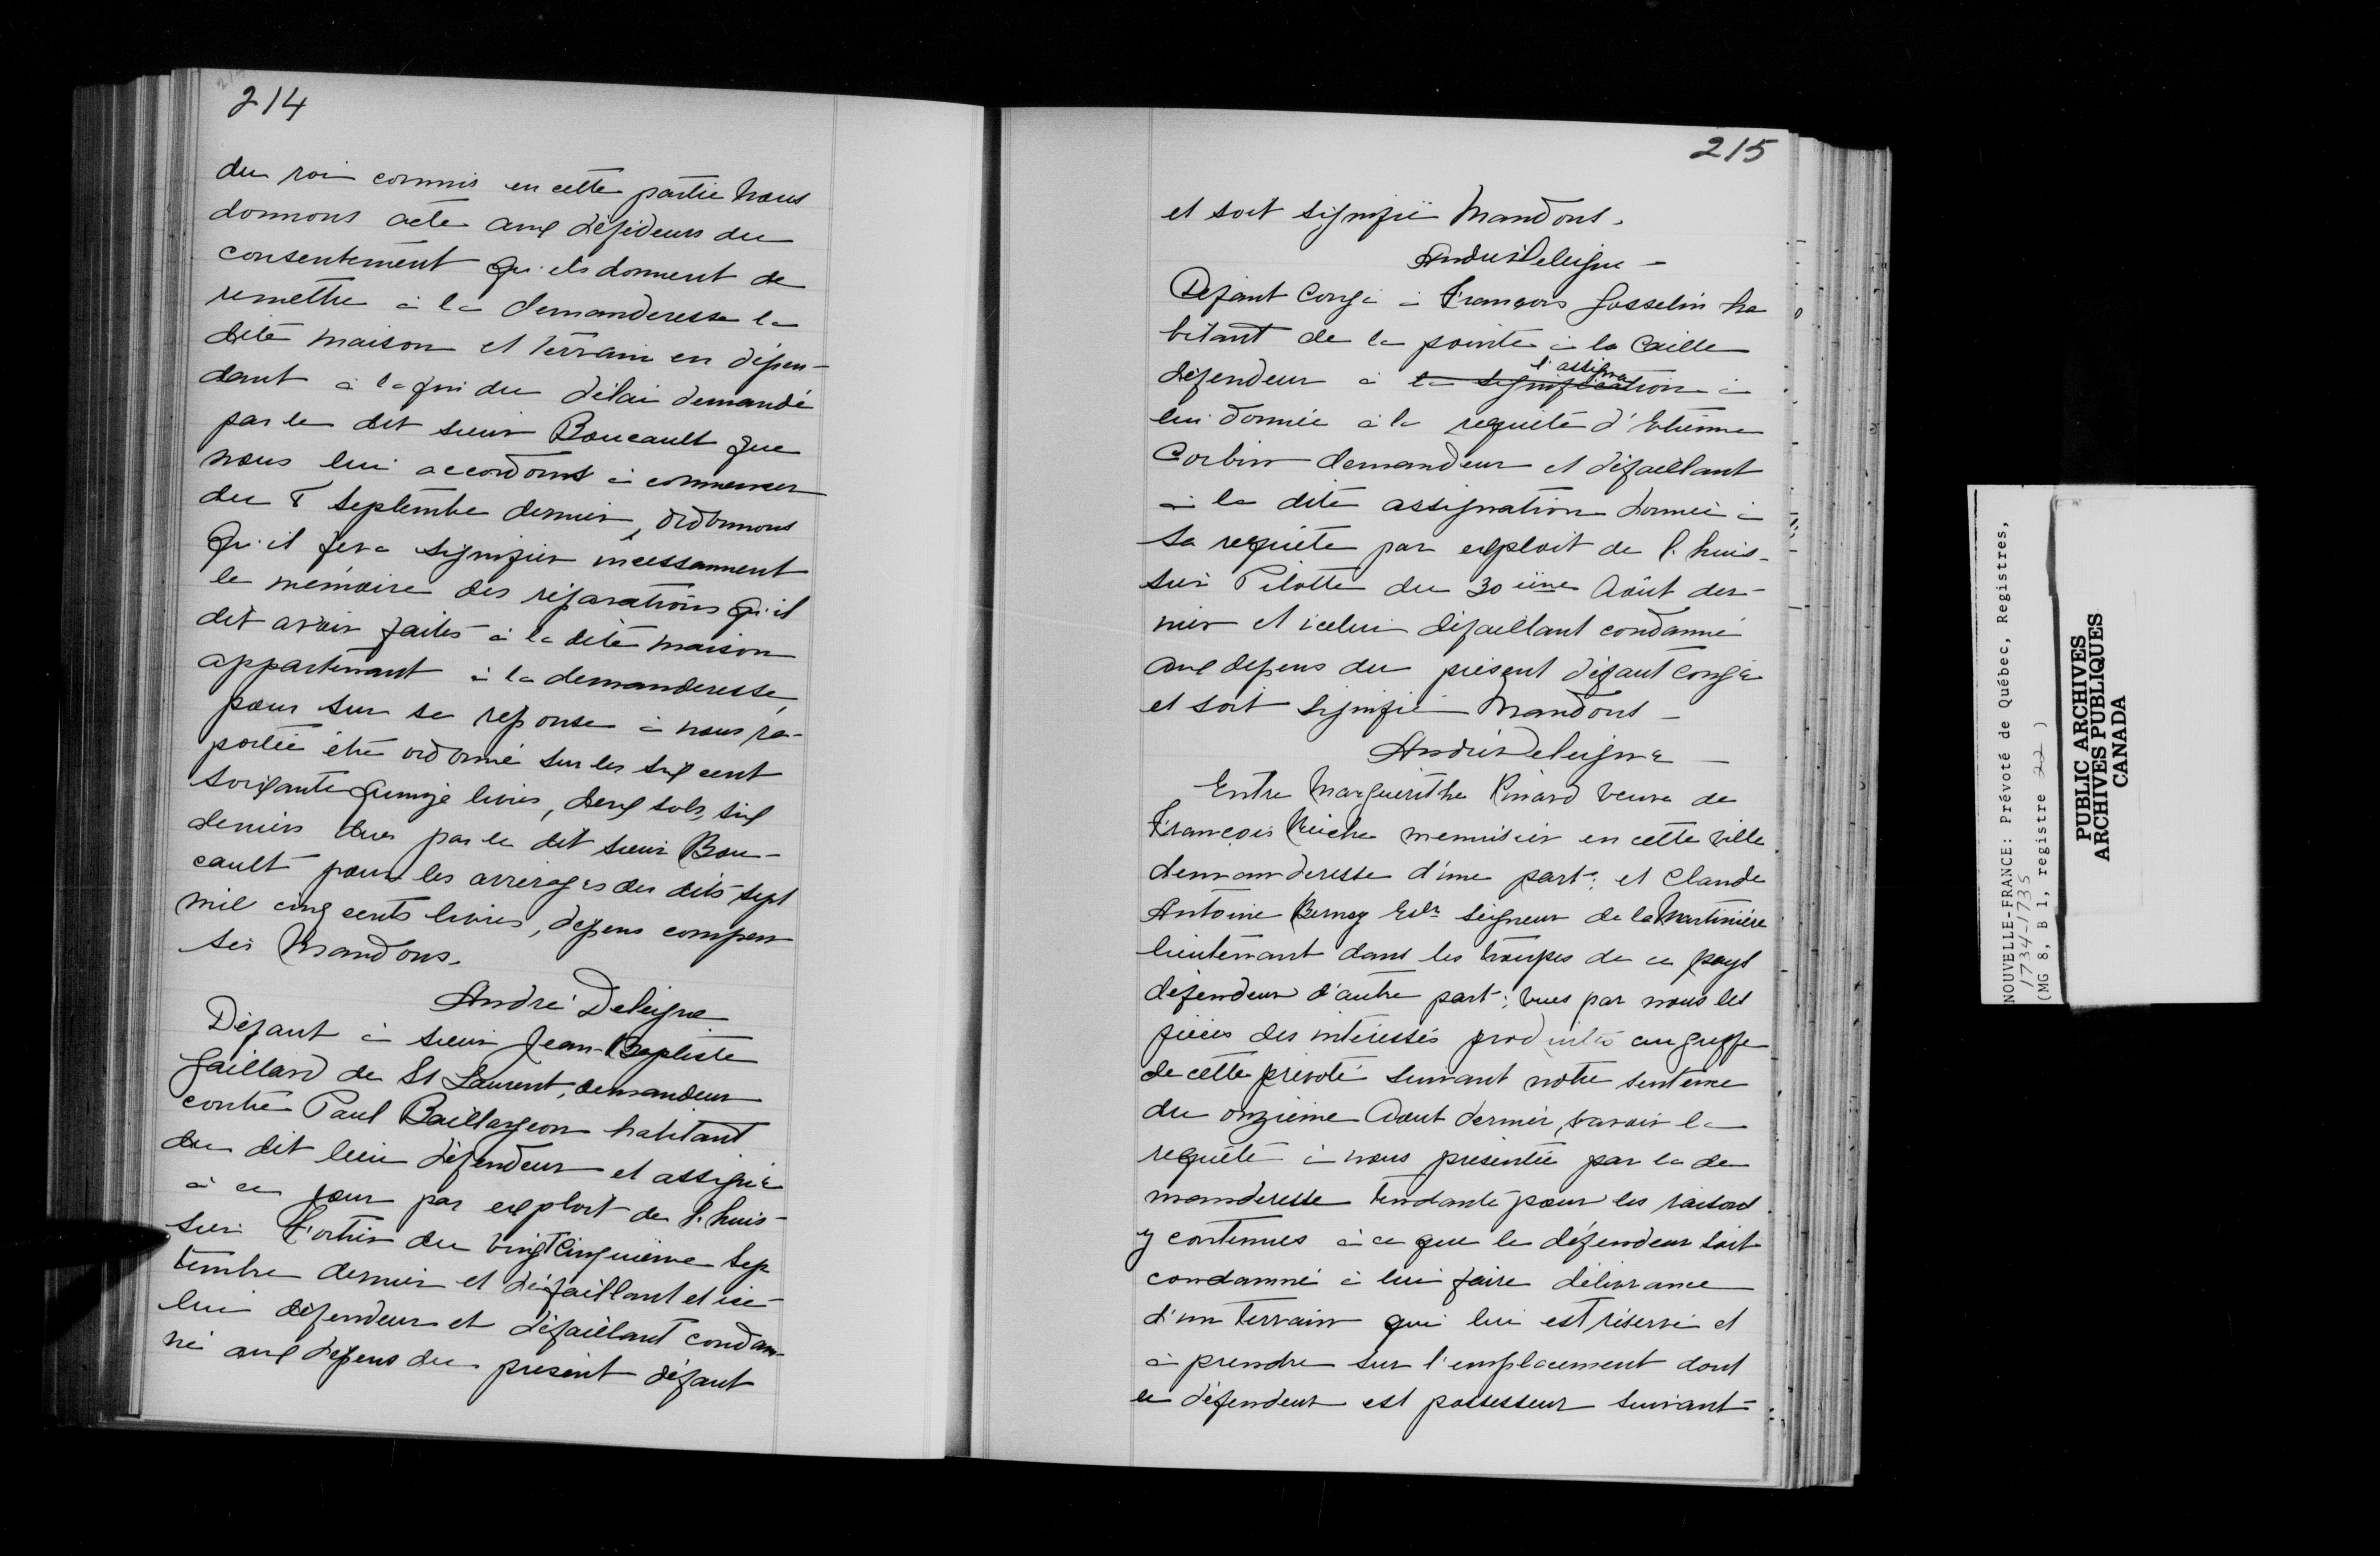 214
du roi commis en cette partie Nous
donnons acte aux défideurs du
consentement qu'ils donnent de
remettre à la demanderesse la
dite maison et terrain en dépen-
dant à la fin du délai demandé
par le dit sieur Boucault que
nous lui accordons à commencer
du 8 septembre dernier, ordonnons
Qu'il fera signifier incessamment
le mémoire des réparations qu'il
dit avoir faites à la dite maison
appartenant à la demanderesse,
pour sur sa reponse à nous ra-
portée être ordonné sur les six cent
soixante quinze livres, deux sols, six
deniers dus par le dit sieur Bou-
cault pour les arrérages des dits sept
mil cinq cents livres, dépens compen
sés Mandons.
André Deleigne
Défaut à sieur Jean-Baptiste
Gaillard de St Laurent, demandeur
contre Paul Baillargeon habitant
du dit lieu défendeur et assigné
à ce jour par exploit de l'huis-
sier Fortier du vingt cinquième sep
tembre dernier et défaillant et ice-
lui défendeur et défaillant condam-
né aux depens du présent défaut
215
et soit signifié Mandons.
André Deleigne -
Défaut Congé à François Gosselin ha
bitant de la pointe à la Caille
l'assigna
défendeur à la signification à
lui donnée à la requête d'Etienne
Corbin demandeur et défaillant
à la dite assignation donnée à
sa requête par exploit de l'huis-
sier Pilotte du 30 ième Août der-
nier et icelui défaillant condamné
aux depens du présent défaut congé
et soit signifié Mandons -
André Deleigne -
Entre Marguerithe Pinard veuve de
François Reiche menuisier en cette ville
demanderesse d'une part; et Claude
Antoine Bermen Esr Seigneur de la Martinière
lieutenant dans les troupes de ce pays
défendeur d'autre part; vues par nous les
pièces des intéressés produites au greffe
de cette prévoté suivant notre sentence
du onzième Aout dernier, savoir la
requête à nous présentée par la de
manderesse tendante pour les raisons
y contenues à ce que le défendeur soit
condamné à lui faire délivrance
d'un terrain qui lui est réservé et
à prendre sur l'emplacement dont
le défendeur est possesseur suivant-
NOUVELLE-FRANCE: Prévoté de Québec, Registres,
1734-1735
(MG 8, B 1, registre 22 )
PUBLIC ARCHIVES
ARCHIVES PUBLIQUES
CANADA